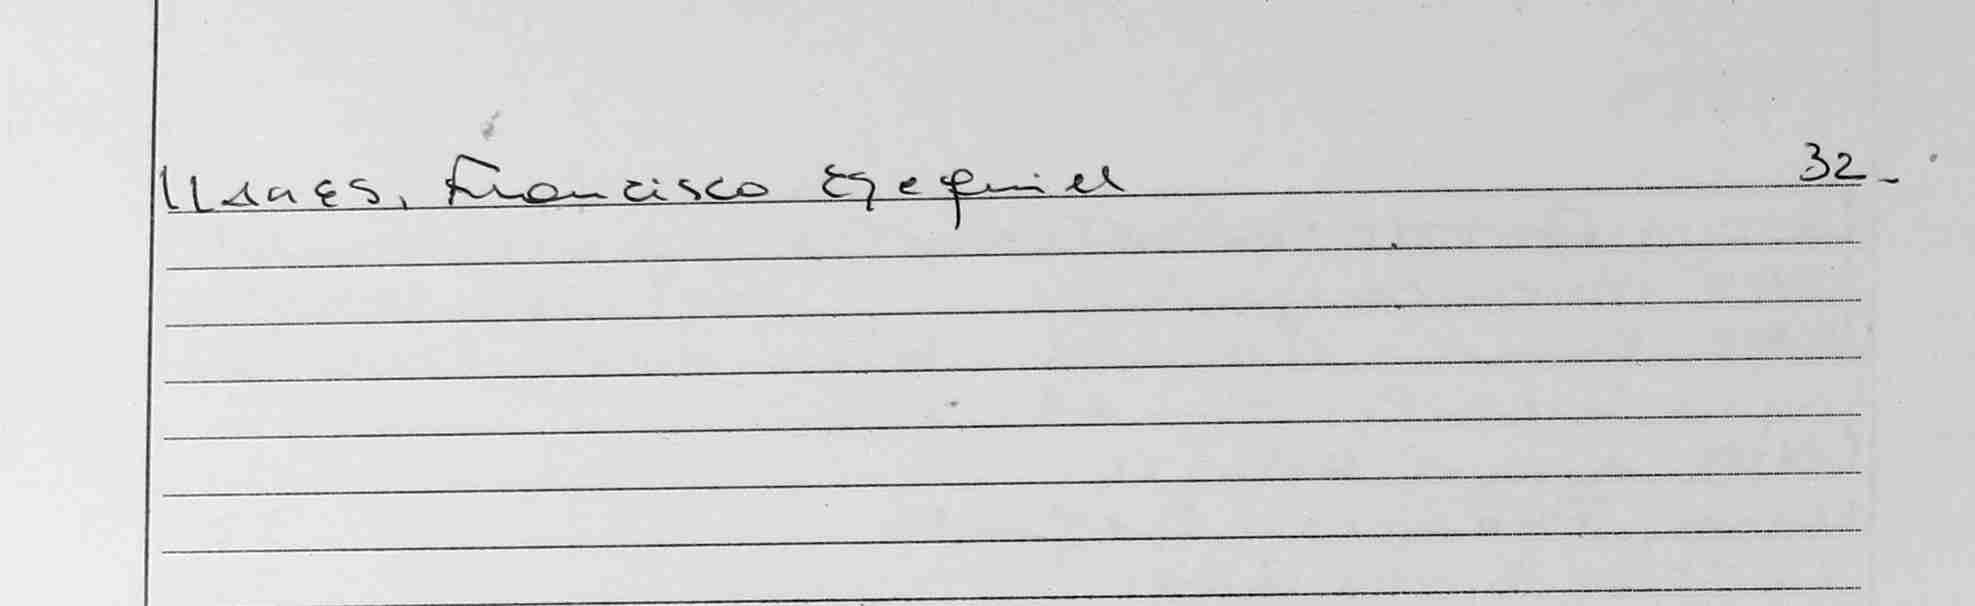 Llanes, Francisco Ezequiel 32-